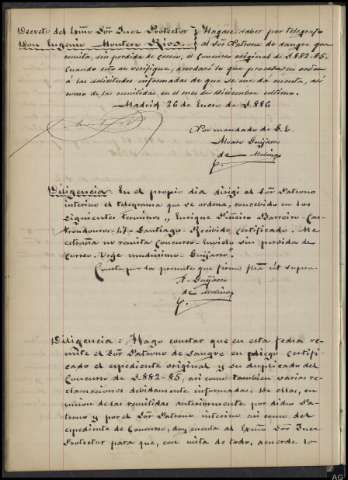 Decreto del Exmo Sor Juez Protector } Hagase saber por telegrafo
Don Eugenio Montero Rios. } al Sor Patrono de Sangre que
remita, sin perdida de correo, el Concurso original de 1.882-85.
Cuando esto se verifique, acordaré lo que proceda en orden
á las solicitudes informadas de que se me da cuenta, asi
como de las remitidas en el mes de Diciembre último.
Madrid 26 de Enero de 1.886
Por mandado de S. E.
Alvaro Guijarro
de
Diligencia En el propio dia dirigí al Sor Patrono
interino el telegrama que se ordena, concebido en los
siguientes terminos "Enrique Piñeiro Barroin
67 Santiago Recibido certificado. Me
extraña no remita Concurso. Envielo sin perdida de
correo. Urge muchisimo Guijarro".
Consta por la presente que firmo fha ut supra.
A. Guijarro
de
Diligencia: Hago constar que en esta fecha re-
mite el Sor Patrono de Sangre en pliego certifi-
cado el expediente original y su duplicado del
Concurso de 1.882-85, asi como tambien varias re-
clamaciones debidamente informadas. De ellas, en
union de las remitidas anteriormente por dicho Pa-
trono y por el Sor Patrono interino asi como del
expediente de Concurso, doy cuenta al Exmo Sor Juez
Protector para que, con vista de todo, acuerde lo
AG